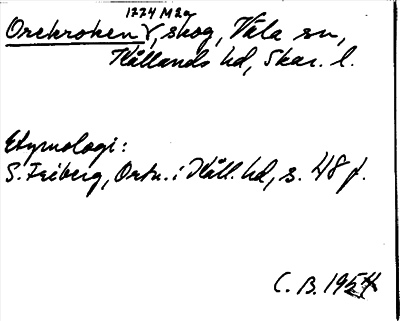 1224 M2a
Orekroken γ, skog, Väla sn,
Kållands hd, Skar. l.
Etymologi:
S. Feiberg, Ortn. i Kåll. hd, s. 48 f.
C. B. 1954